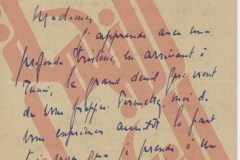 Madame,
j'apprends avec une
profonde tristesse, en arrivant à
Tunis, le grand deuil qui vient
de vous frapper. Permettez-moi de
vous exprimer aussitôt la part
que je prends à un